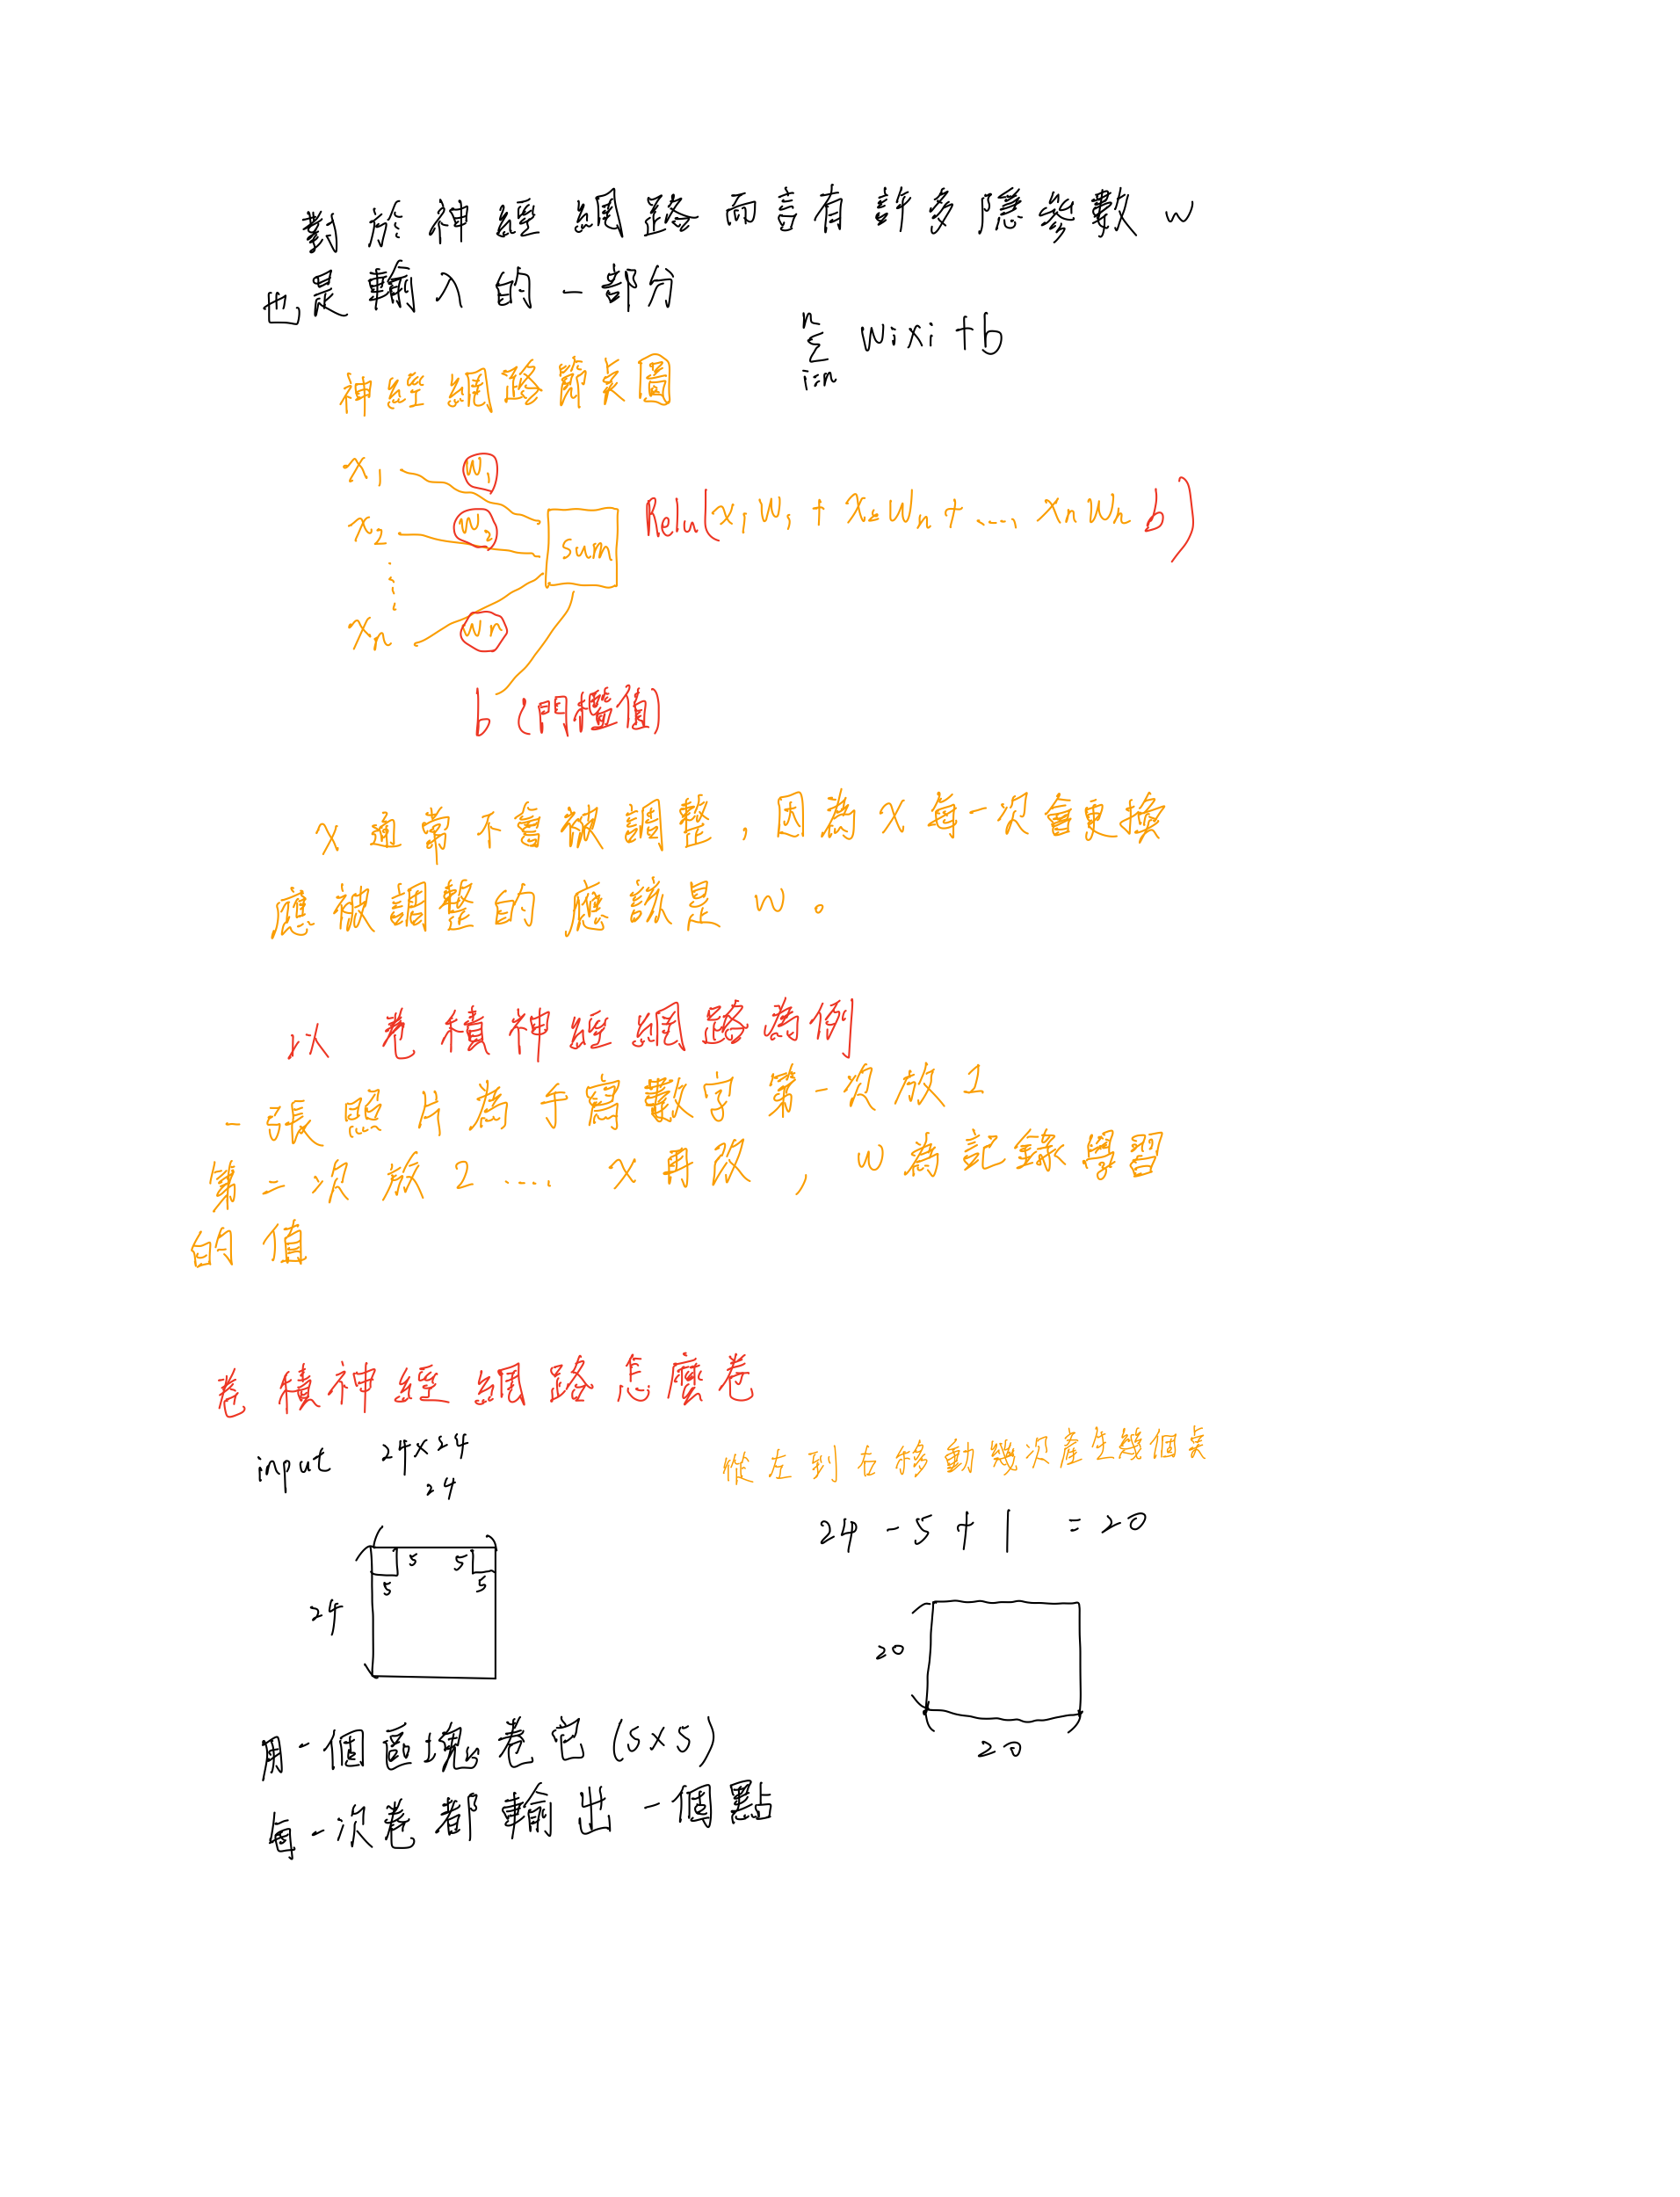 對於神經網路而言有許多隱參數 w
也是輸入的一部分
n
Σ wixi+b
i=n
神經網路節点圖
x1 w1
x2 w2
⋮
xn wn
sum
Relu(x1w1 + x2wn + .... xnwn b)
b (門檻值)
x 通常不會被調整，因為 x 每一次會更換
應被調整的應該是 w。
以卷積神經網路為例
一張照片為手寫數字第一次放1
第二次放2 .... x再改，w為記錄學習
的值
卷積神經網路怎麼卷
input 24x24
24
24
5 5
5 5
從左到右移動幾次產生幾個点
24 - 5 + 1 = 20
20
20
用一個區塊卷它 (5x5)
每一次卷都輸出一個點